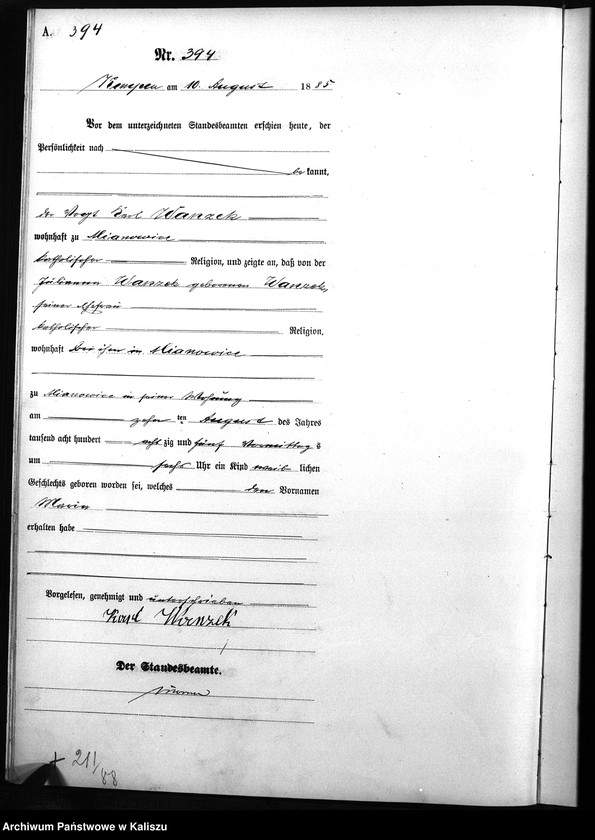 A. 394
Nr. 394
Kempen am 10. August 1885
Vor dem unterzeichneten Standesbeamten erschien heute, der
Persönlichkeit nach
be kannt,
der Vogt Karl Wanzek
wohnhaft zu Mianowice
katholischer Religion, und zeigte an, daß von der
Julianna Wanzek geborenen Wanzek,
seiner Ehefrau
katholischer Religion,
wohnhaft bei ihm in Mianowice
zu Mianowice in seiner Wohnung
am zehn ten August des Jahres
tausend acht hundert acht zig und fünf Vormittag s
um sechs Uhr ein Kind weib lichen
Geschlechts geboren worden sei, welches den Vornamen
Maria
erhalten habe
Vorgelesen, genehmigt und unterschrieben
Karl Wanzek
Der Standesbeamte.
+ 211/88
Archiwum Państwowe w Kaliszu